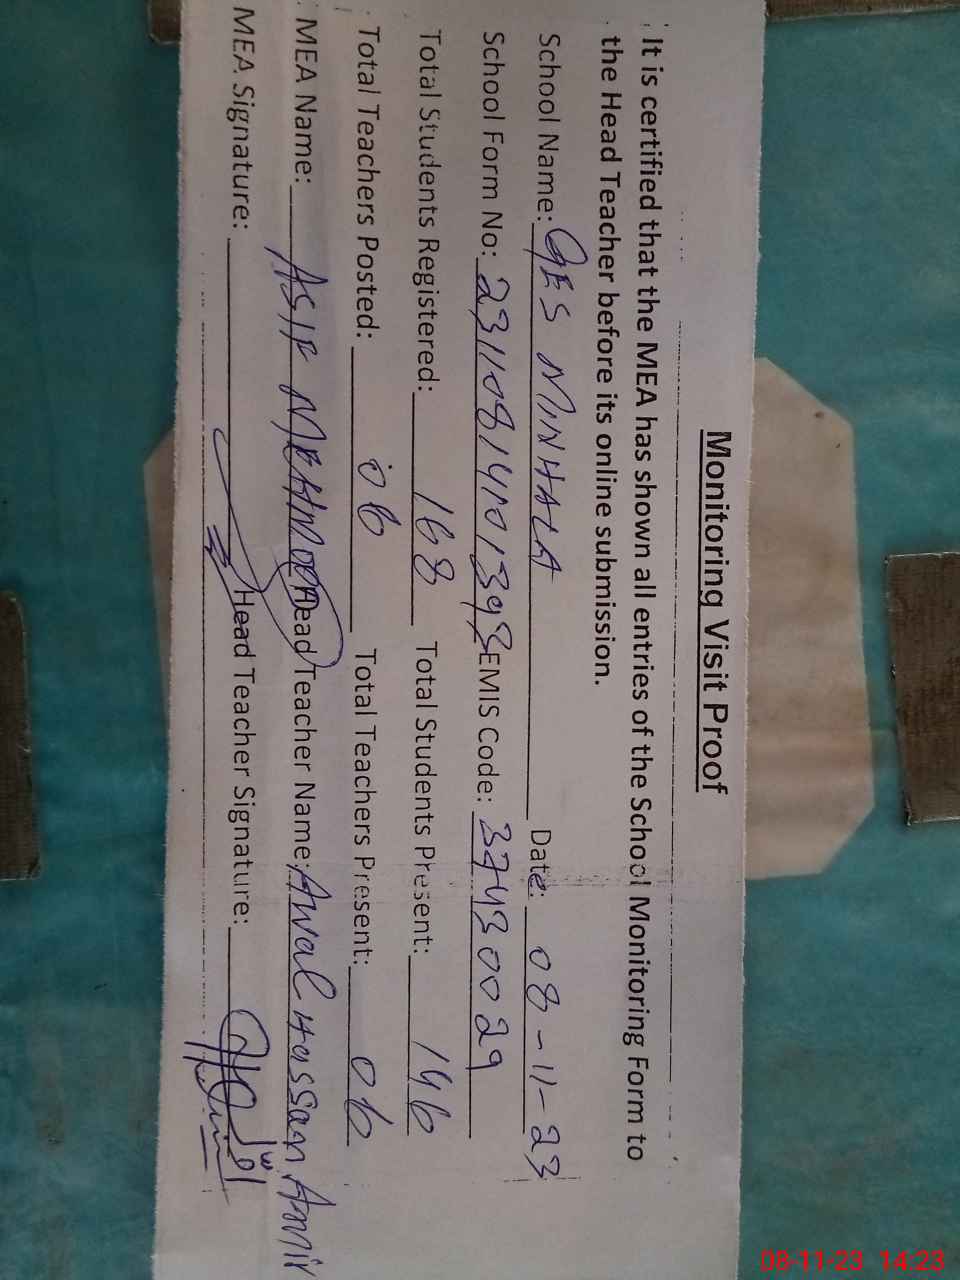 Monitoring Visit Proof
It is certified that the MEA has shown all entries of the School Monitoring Form to
the Head Teacher before its online submission.
School Name: GES MINHALA Date: 08-11-23
School Form No: EMIS Code: 37430029
Total Students Registered: 168 Total Students Present: 146
Total Teachers Posted: 06 Total Teachers Present: 06
MEA Name: ASIF MEHMOOD Head Teacher Name: Awal Hassan Amir
MEA Signature: Head Teacher Signature:
08-11-23 14:23